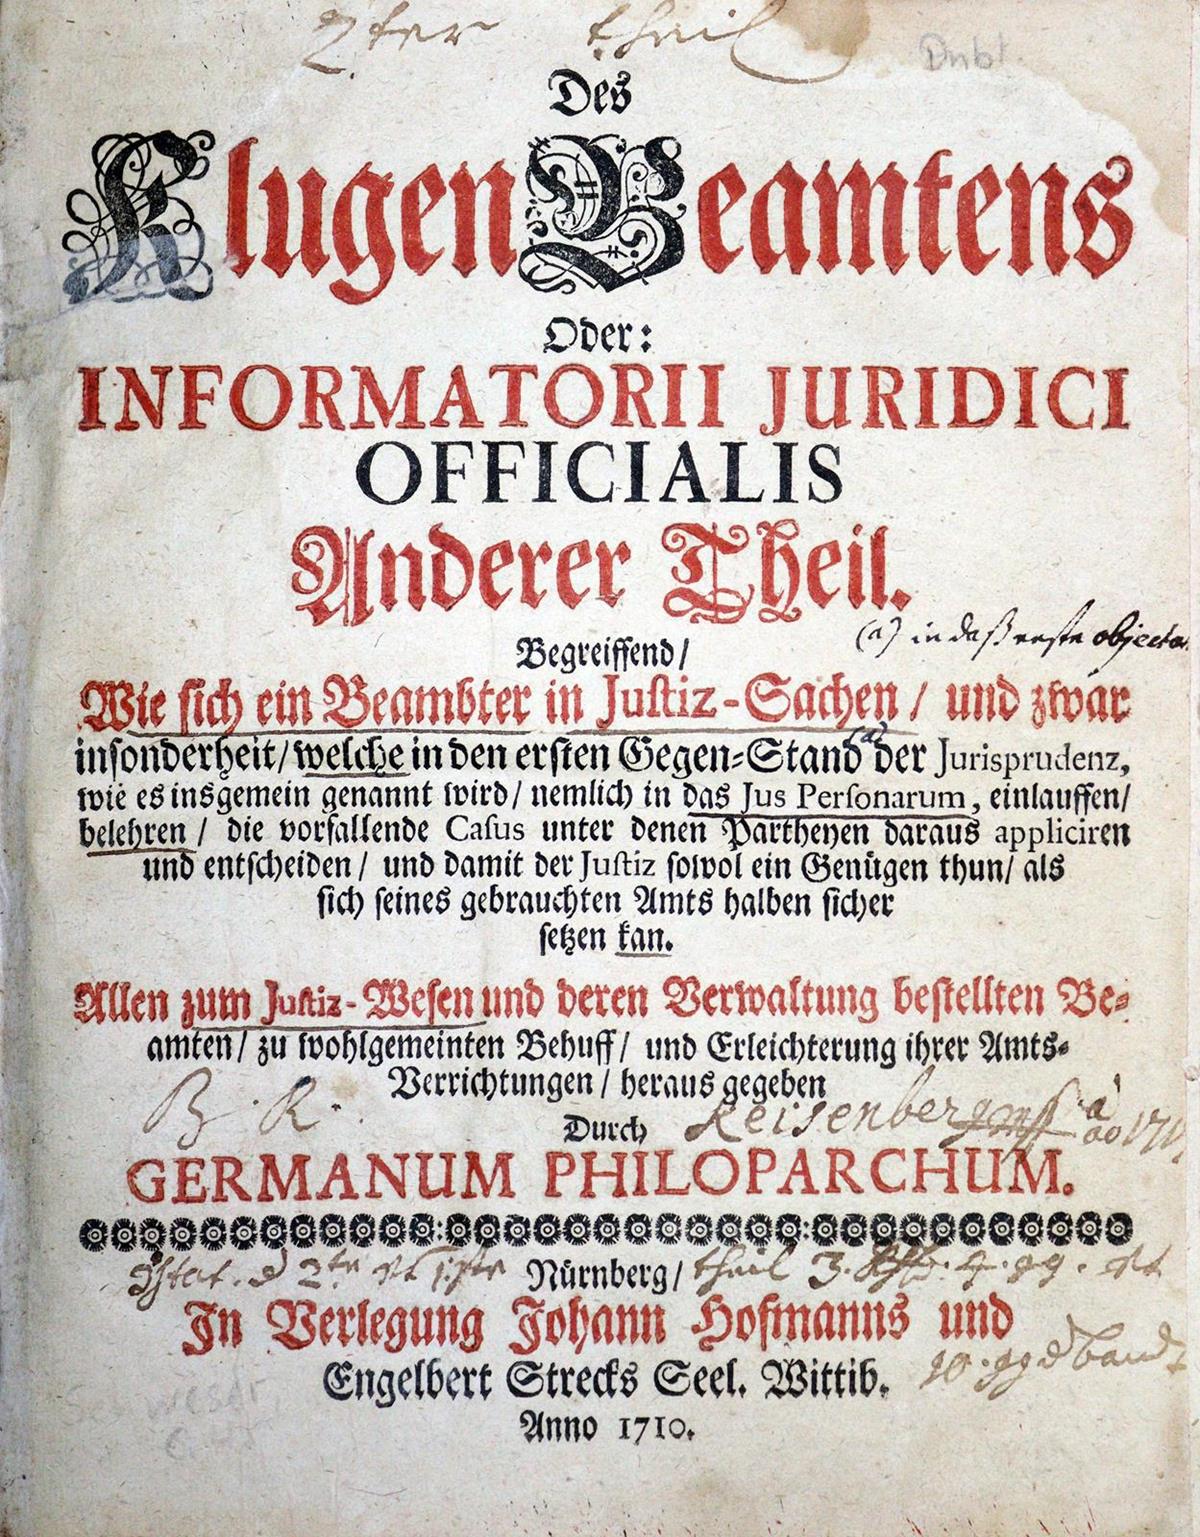 2ter theil
Des
Klugen Beamtens
Oder:
INFORMATORII JURIDICI
OFFICIALIS
Anderer Theil.
(a) in daß erste objectum
Begreiffend/
Wie sich ein Beambter in Justiz-Sachen / und zwar
insonderheit/ welche in den ersten Gegen-Stand (a) der Jurisprudenz,
wie es insgemein genannt wird/ nemlich in das Jus Personarum, einlauffen/
belehren / die vorfallende Casus unter denen Partheyen daraus appliciren
und entscheiden / und damit der Justiz sowol ein Genügen thun/ als
sich seines gebrauchten Amts halben sicher
setzen kan.
Allen zum Justiz-Wesen und deren Verwaltung bestellten Be-
amten/ zu wohlgemeinten Behuff/ und Erleichterung ihrer Amts-
Verrichtungen / heraus gegeben
Durch
GERMANUM PHILOPARCHUM.
Nürnberg/ theil
In Verlegung Johann Hofmanns und
Engelbert Strecks Seel. Wittib.
Anno 1710.